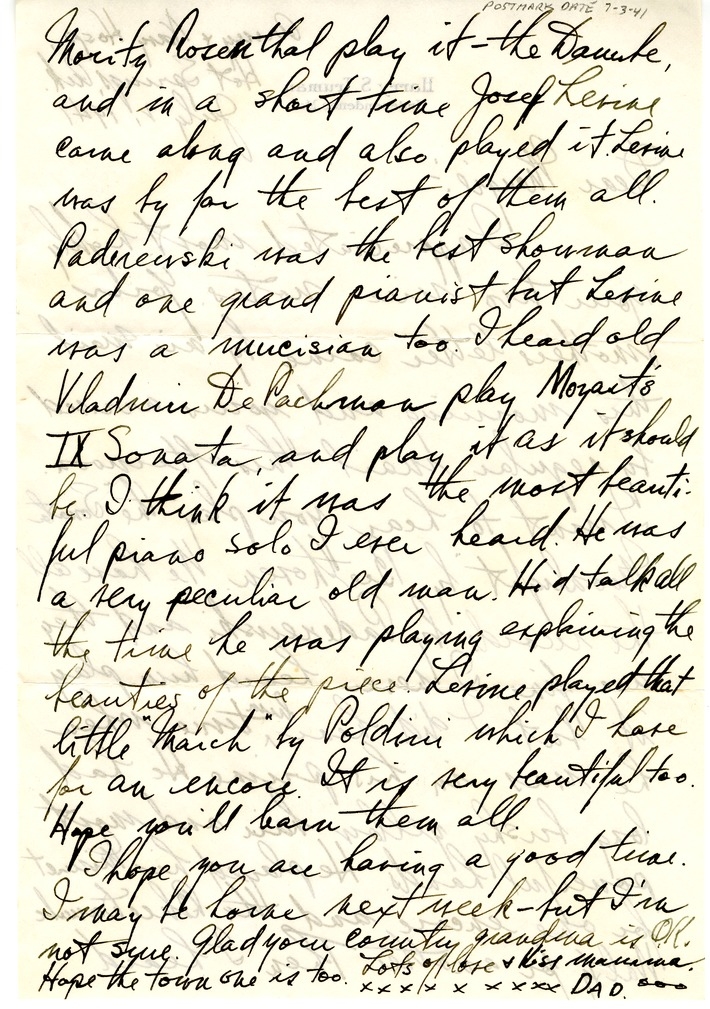 POSTMARK DATE 7-3-41
Mority Rosenthal play it - the Danube,
and in a short time Josef Levine
came along and also played it. Levine
was by far the best of them all.
Paderewski was the best showman
and one grand pianist but Levine
was a mucisian too. I heard old
Vladmir De Pachman play Mozart's
IX Sonata, and play it as it should
be. I think it was the most beauti-
ful piano solo I ever heard. He was
a very peculiar old man. He'd talk all
the time he was playing explaining the
beauties of the piece. Levine played that
little "March" by Poldini which I have
for an encore. It is very beautiful too.
Hope you'll learn them all.
I hope you are having a good time.
I may be home next week - but I'm
not sure. Glad your country grandma is O.K.
Hope the town one is too. Lots of love & kiss mamma.
x x x x x x x x x DAD. ooo